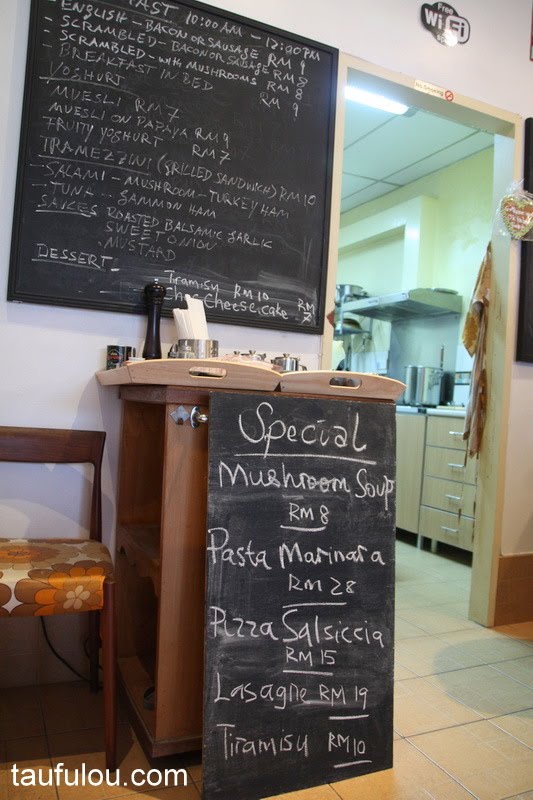 FAST 10:00AM - 12:30PM
- ENGLISH - BACON OR SAUSAGE RM 9
- SCRAMBLED - BACON OR SAUSAGE RM 8
- SCRAMBLED - with MUSHROOMS RM 8
- BREAKFAST IN BED RM 9
YOGHURT
MUESLI RM 7
MUESLI ON PAPAYA RM 9
FRUITY YOGHURT RM 7
TRAMEZZINI (GRILLED SANDWICH) RM 10
SALAMI - MUSHROOM - TURKEY HAM
TUNA GAMMON HAM
SAUCES ROASTED BALSAMIC GARLIC
SWEET ONION
MUSTARD
DESSERT:
Tiramisu RM 10
Choc Cheese cake RM
Free
Wi Fi
No Smoking
Special
Mushroom Soup
RM 8
Pasta Marinara
RM 28
Pizza Salsiccia
RM 15
Lasagne RM 19
Tiramisu RM 10
taufulou.com